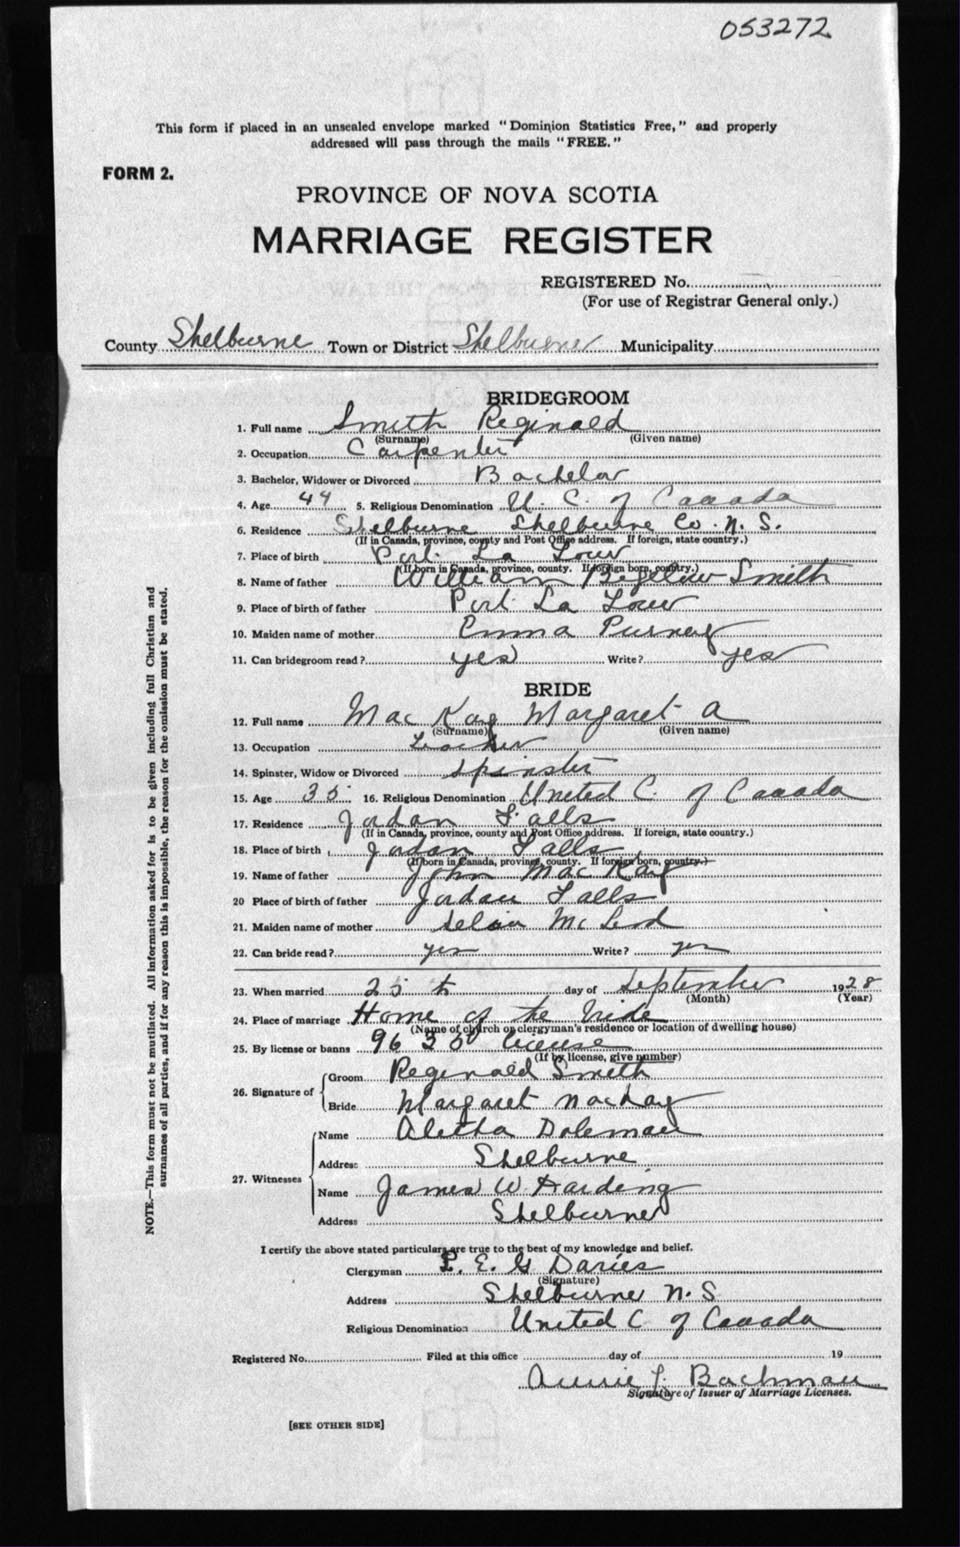 053272
This form if placed in an unsealed envelope marked "Dominion Statistics Free," and properly
addressed will pass through the mails "FREE."
FORM 2.
PROVINCE OF NOVA SCOTIA
MARRIAGE REGISTER
REGISTERED No.
(For use of Registrar General only.)
County Shelburne Town or District Shelburne Municipality
BRIDEGROOM
1. Full name Smith Reginald
(Surname) (Given name)
2. Occupation Carpenter
3. Bachelor, Widower or Divorced Bachelor
4. Age 44 5. Religious Denomination U. C. of Canada
6. Residence Shelburne Shelburne Co. N. S.
(If in Canada, province, county and Post Office address. If foreign, state country.)
7. Place of birth Port La Tour
(If born in Canada, province, county. If foreign born, country.)
8. Name of father William Bigelow Smith
9. Place of birth of father Port La Tour
10. Maiden name of mother Emma Purney
11. Can bridegroom read? yes Write? yes
BRIDE
12. Full name Mac Kay Margaret A
(Surname) (Given name)
13. Occupation Teacher
14. Spinster, Widow or Divorced Spinster
15. Age 35 16. Religious Denomination United C. of Canada
17. Residence Jordan Falls
(If in Canada, province, county and Post Office address. If foreign, state country.)
18. Place of birth Jordan Falls
(If born in Canada, province, county. If foreign born, country.)
19. Name of father John Mac Kay
20 Place of birth of father Jordan Falls
21. Maiden name of mother Mc Leod
22. Can bride read? yes Write? yes
23. When married 25 th day of September 1928
(Month) (Year)
24. Place of marriage Home of the bride
(Name of church or clergyman's residence or location of dwelling house)
25. By license or banns license
(If by license, give number)
26. Signature of
Groom Reginald Smith
Bride Margaret MacKay
27. Witnesses
Name Aletha Doleman
Address Shelburne
Name James W. Harding
Address Shelburne
I certify the above stated particulars are true to the best of my knowledge and belief.
Clergyman E. G Davies
(Signature)
Address Shelburne N. S
Religious Denomination United C of Canada
Registered No. Filed at this office day of 19
Annie L. Bachman
Signature of Issuer of Marriage Licenses.
[SEE OTHER SIDE]
NOTE.—This form must not be mutilated. All information asked for is to be given including full Christian and
surnames of all parties, and if for any reason this is impossible, the reason for the omission must be stated.